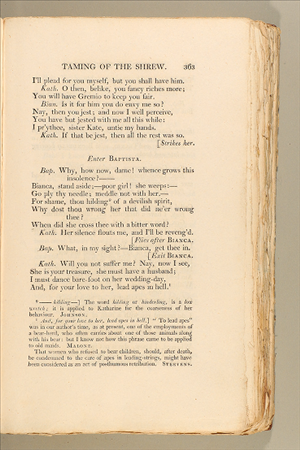 TAMING OF THE SHREW. 363
I'll plead for you myself, but you shall have him.
Kath. O then, belike, you fancy riches more;
You will have Gremio to keep you fair.
Bian. Is it for him you do envy me so?
Nay, then you jest; and now I well perceive,
You have but jested with me all this while:
I pr'ythee, sister Kate, untie my hands.
Kath. If that be jest, then all the rest was so.
[Strikes her.
Enter BAPTISTA.
Bap. Why, how now, dame! whence grows this
insolence?——
Bianca, stand aside;—poor girl! she weeps:—
Go ply thy needle; meddle not with her.—
For shame, thou hilding⁸ of a devilish spirit,
Why dost thou wrong her that did ne'er wrong
thee?
When did she cross thee with a bitter word?
Kath. Her silence flouts me, and I'll be reveng'd.
[Flies after BIANCA.
Bap. What, in my sight?—Bianca, get thee in.
[Exit BIANCA.
Kath. Will you not suffer me? Nay, now I see,
She is your treasure, she must have a husband;
I must dance bare-foot on her wedding-day,
And, for your love to her, lead apes in hell.⁹
⁸ — hilding—] The word hilding or hinderling, is a low
wretch; it is applied to Katharine for the coarseness of her
behaviour. JOHNSON.
⁹ And, for your love to her, lead apes in hell.] "To lead apes"
was in our author's time, as at present, one of the employments of
a bear-herd, who often carries about one of those animals along
with his bear: but I know not how this phrase came to be applied
to old maids. MALONE.
That women who refused to bear children, should, after death,
be condemned to the care of apes in leading-strings, might have
been considered as an act of posthumous retribution. STEEVENS.